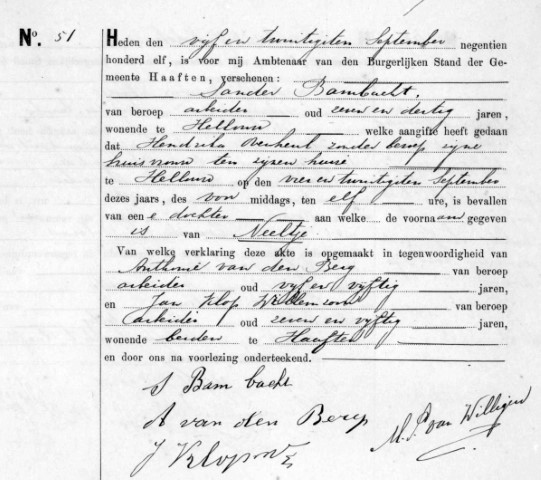 No. 51 Heden den vijf en twintigsten September negentien
honderd elf, is voor mij Ambtenaar van den Burgerlijken Stand der Ge-
meente Haaften, verschenen:
Sander Bambacht,
van beroep arbeider oud zeven en dertig jaren,
wonende te Hellouw welke aangifte heeft gedaan
dat Hendrika Verheul zonder beroep zijne
huisvrouw ten zijnen huize
te Hellouw op den vier en twintigsten September
dezes jaars, des voor middags, ten elf ure, is bevallen
van een e dochter aan welke de voornaam gegeven
is van Neeltje
Van welke verklaring deze akte is opgemaakt in tegenwoordigheid van
Anthonie van den Berg van beroep
arbeider oud vijf en vijftig jaren,
en Jan Klop Willemzoon van beroep
arbeider oud zeven en vijftig jaren,
wonende beiden te Haaften
en door ons na voorlezing onderteekend.
S Bambacht
A van den Berg
J Klop Wz
van Willigen